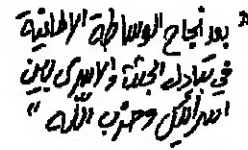 " بعد نجاح الوساطة الالمانية
في تبادل الجثث والاسرى بين
اسرائيل وحزب الله "